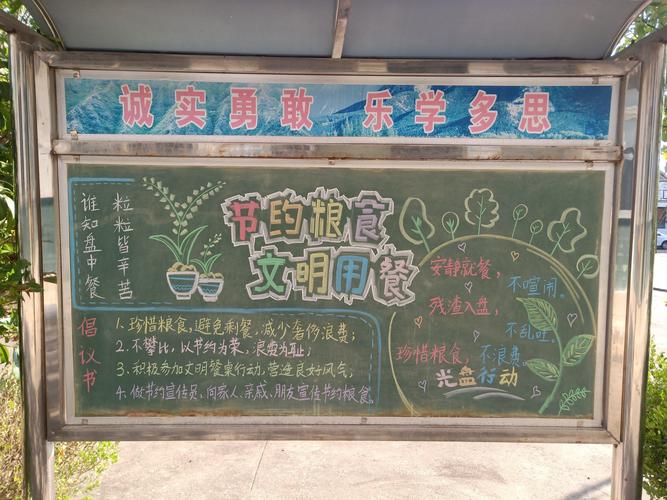 诚实勇敢 乐学多思
谁知盘中餐
粒粒皆辛苦
节约粮食
文明用餐
倡议书
1.珍惜粮食,避免剩餐,减少奢侈浪费;
2.不攀比,以节约为荣,浪费为耻;
3.积极参加文明餐桌行动,营造良好风气;
4.做节约宣传员,向家人、亲戚、朋友宣传节约粮食。
安静就餐,
不喧闹。
残渣入盘,
不乱吐。
珍惜粮食,不浪费。
光盘行动